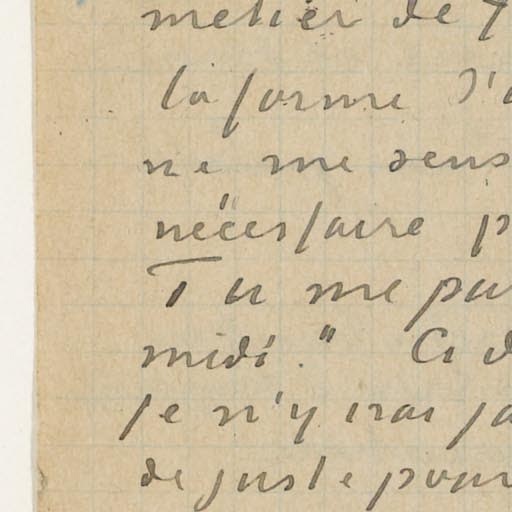 métier de
la forme J'a
ne me sens
nécessaire p
Tu me pa
midi." Ce d
je n'y irai ja
de juste pour